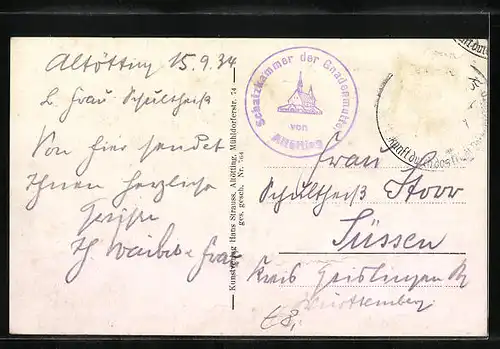 Altötting 15.9.34
L. Frau Schultheiß
Von hier sendet
Ihnen herzliche
Grüße
Th. Waibel & Frau
Kunstverlag Hans Strauss, Altötting, Mühldorferstr. 74
ges. gesch. Nr. 764
Schatzkammer der Gnadenmutter
von
Altötting
Frau
Schultheiß
Süssen
Kreis Geislingen
Württemberg